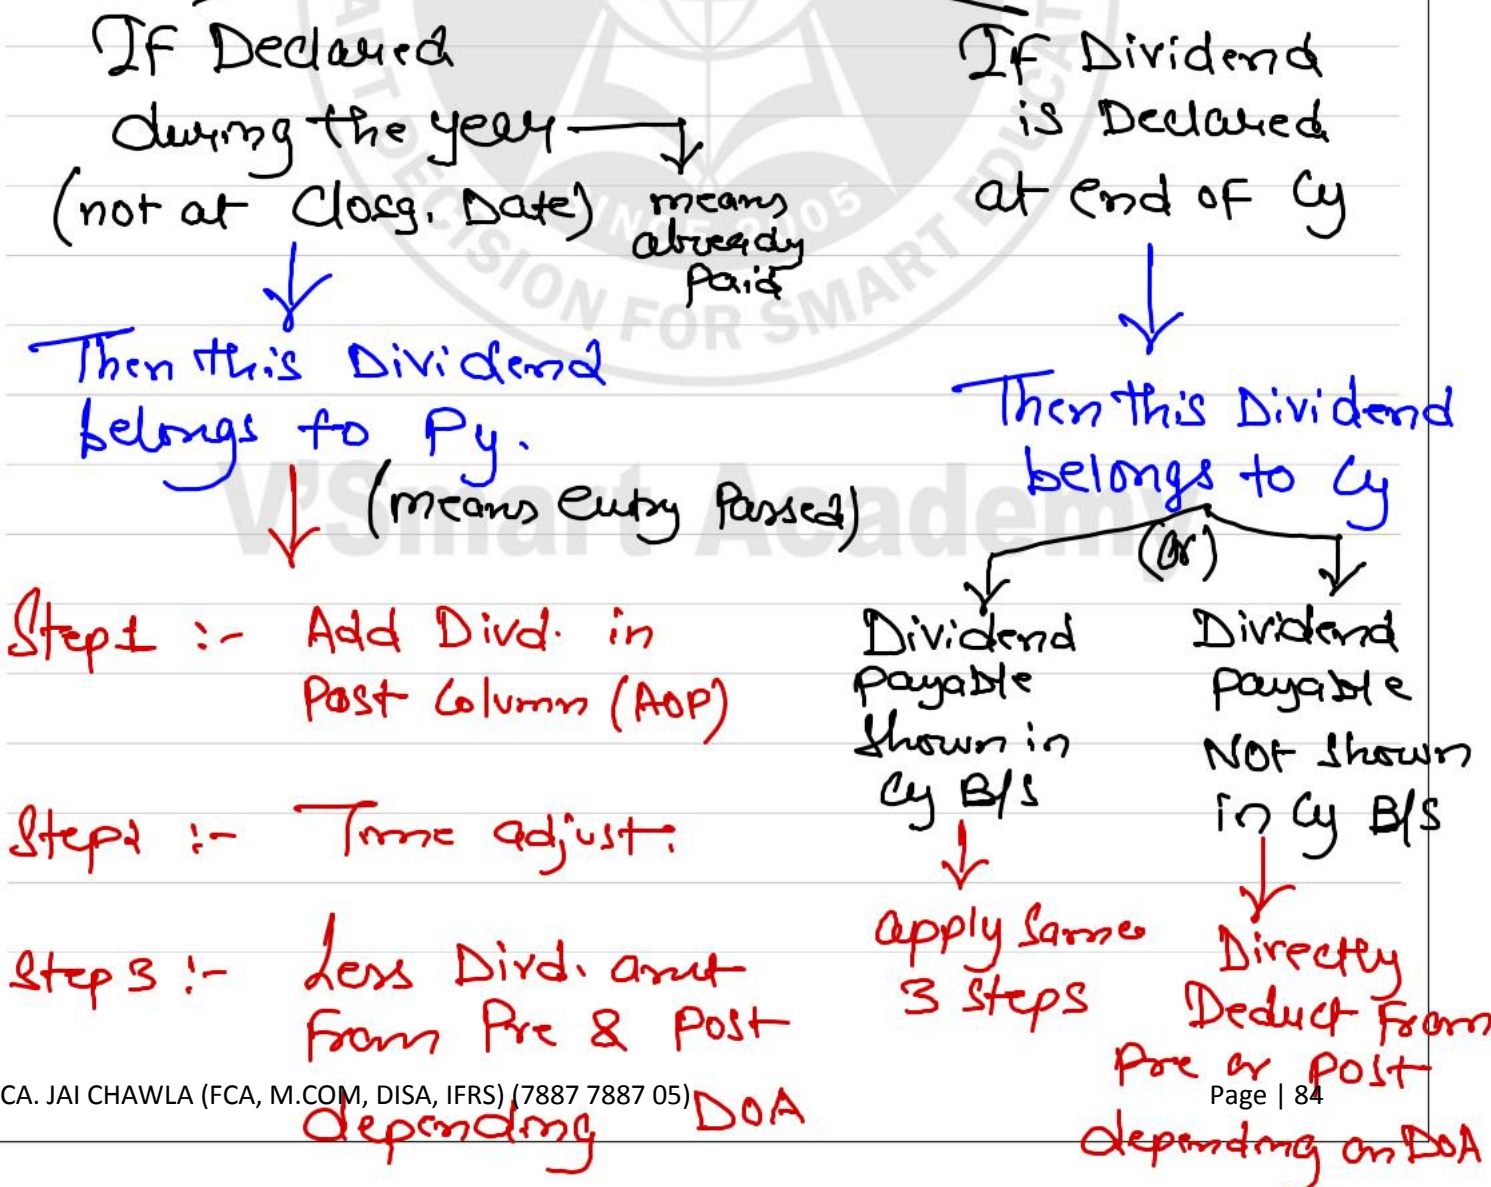 If Declared
during the year
(not at Closg. Date)
means
already
Paid
Then this Dividend
belongs to Py.
(means Entry Passed)
Step1 :- Add Divd. in
Post Column (AOP)
Step2 :- Time adjust.
Step 3 :- Less Divd. amt
From Pre & Post
depending DOA
If Dividend
is Declared
at end of Cy
Then this Dividend
belongs to Cy
(or)
Dividend
payable
Shown in
Cy B/S
apply Same
3 Steps
Dividend
payable
NOT Shown
in Cy B/S
Directly
Deduct From
Pre or Post
depending on DOA
SINCE 2005
DECISION FOR SMART EDUCAT
V'Smart Academy
CA. JAI CHAWLA (FCA, M.COM, DISA, IFRS) (7887 7887 05)
Page | 84